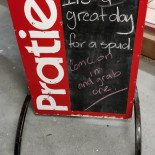 Pratie
It's a
great day
for a spud.
Come on
in
and grab
one.